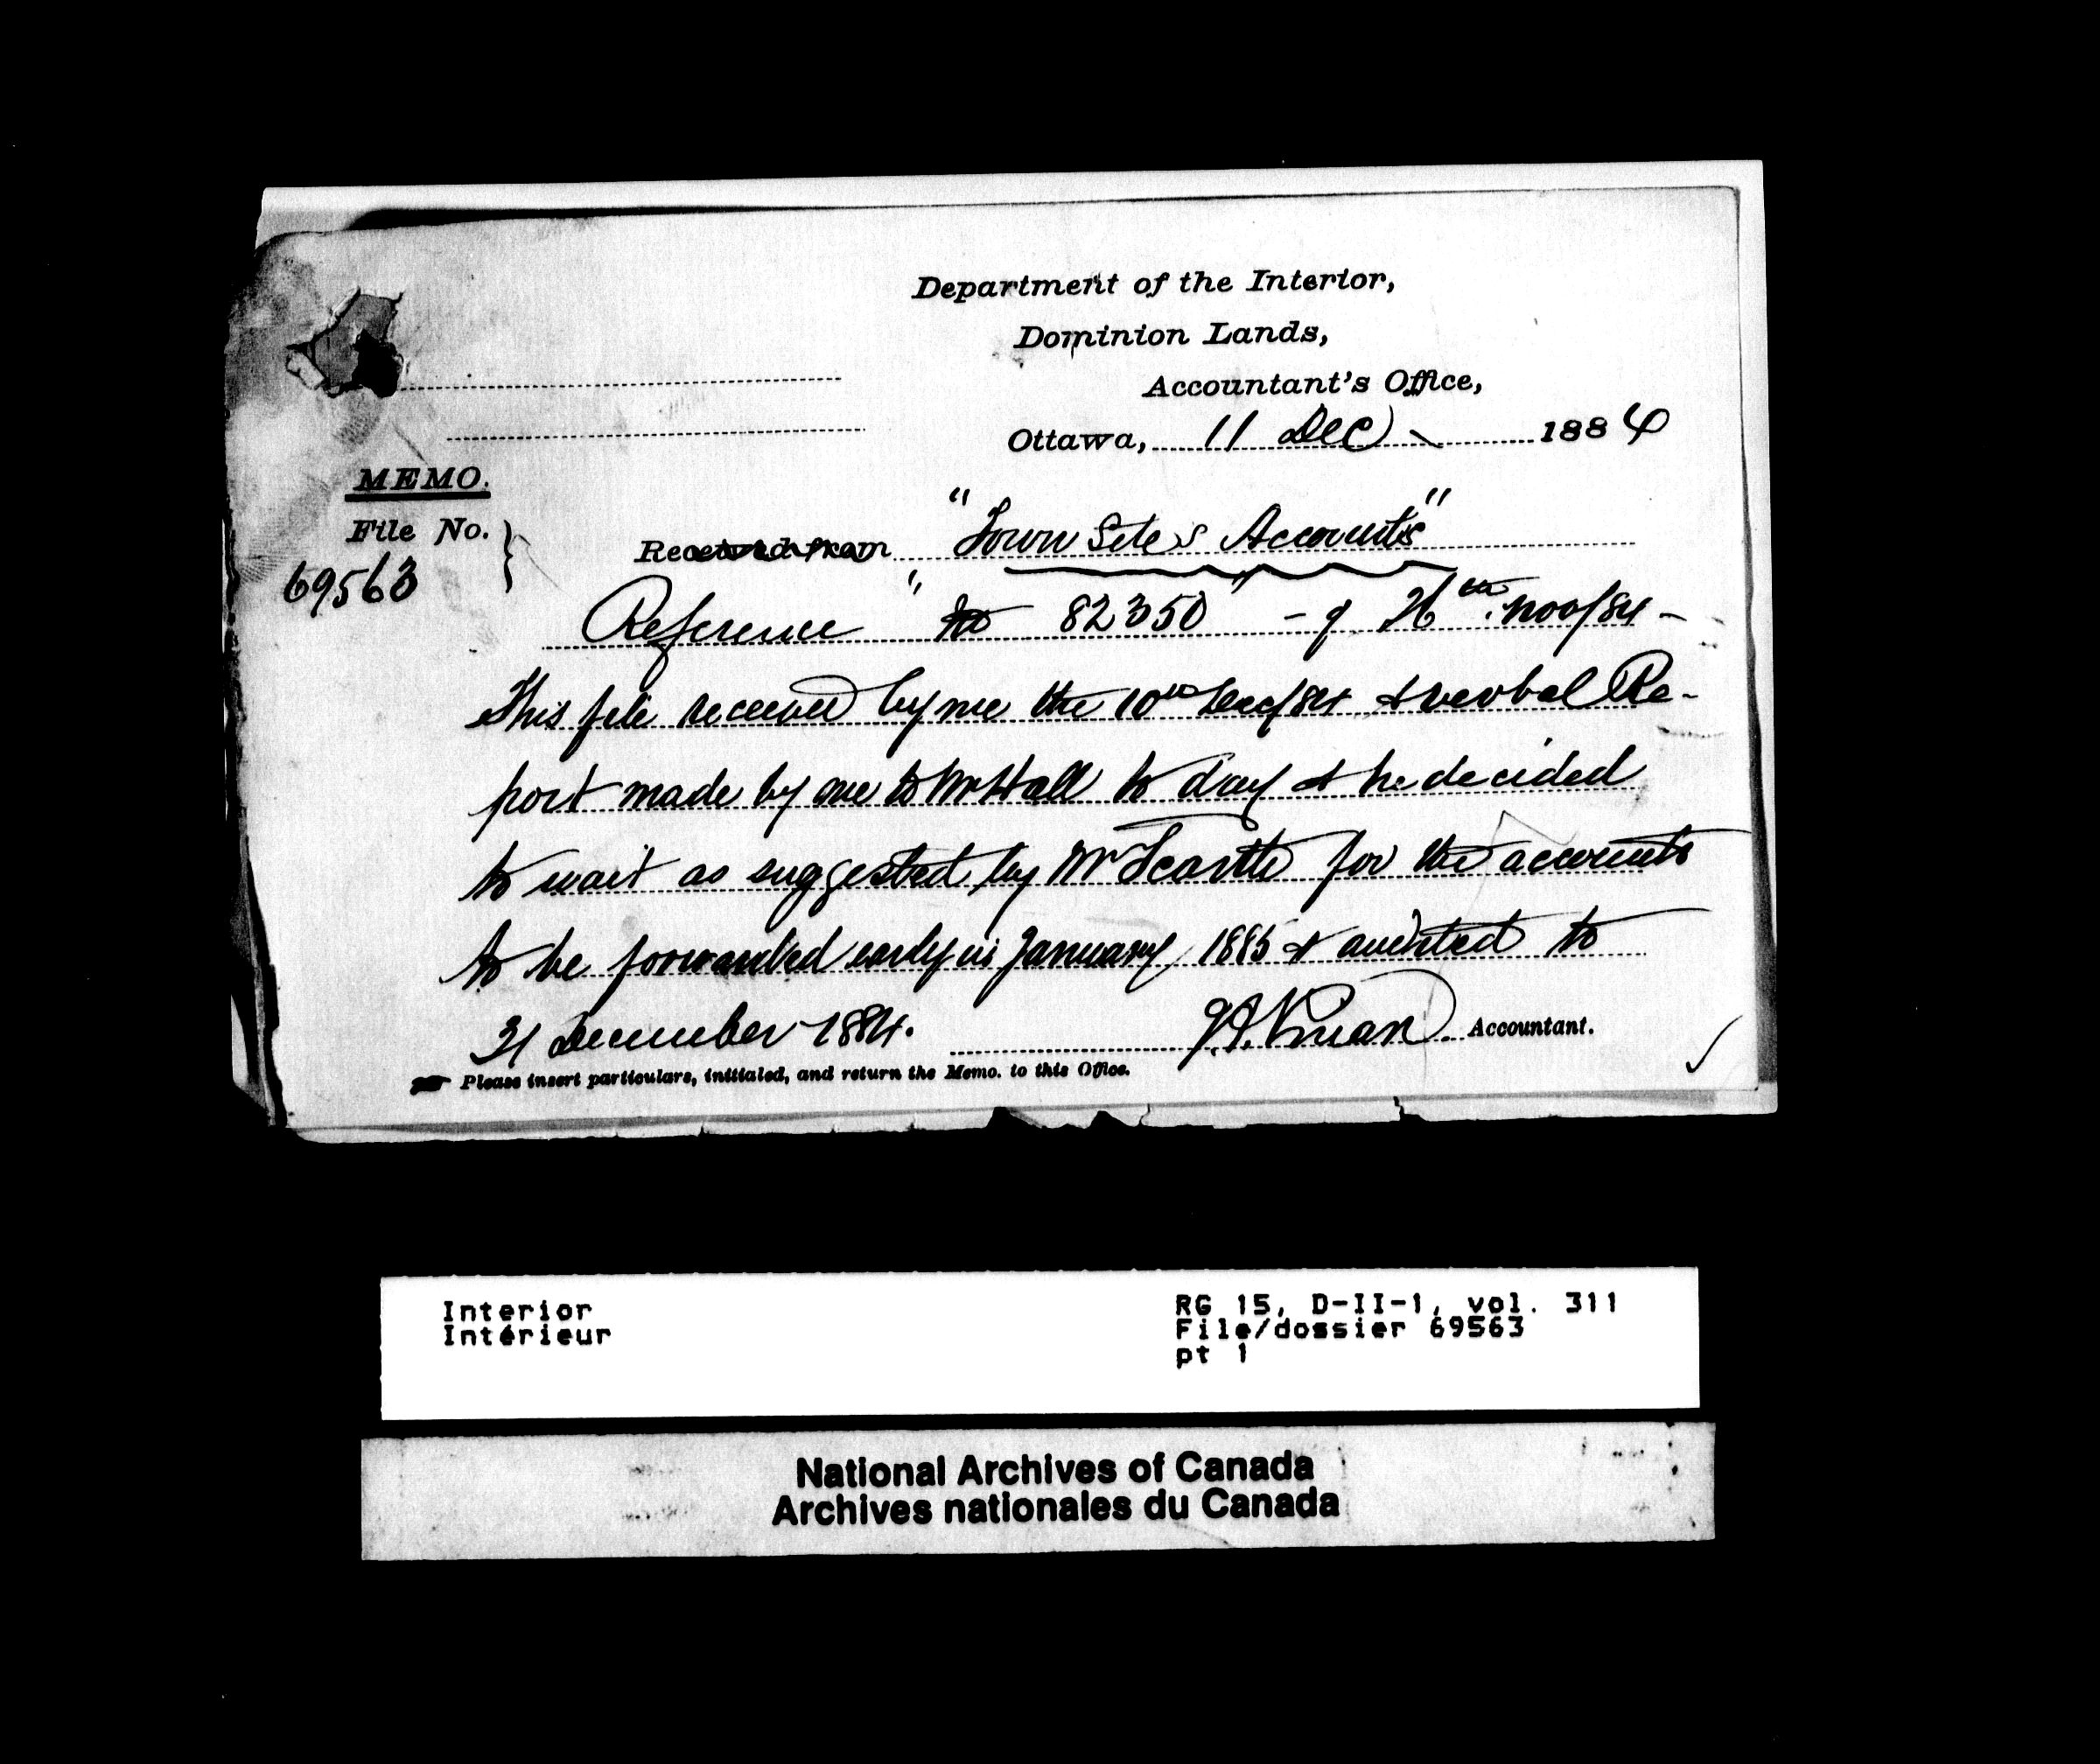 Department of the Interior,
Dominion Lands,
Accountant's Office,
Ottawa, 11 Dec 1884
MEMO.
File No.
69563
Received from "Town Sites Accounts"
Reference "to 82350" - of 26th Nov/84 -
This file received by me the 10th Dec/84 & verbal Re-
port made by me to Mr Hall to day & he decided
to wait as suggested by Mr Scarth for the accounts
to be forwarded early in January 1885 & audited to
31 December 1884.
J.A. Pinard. Accountant.
Please insert particulars, initialed, and return the Memo. to this Office.
Interior
Intérieur
RG 15, D-II-1, vol. 311
File/dossier 69563
pt 1
National Archives of Canada
Archives nationales du Canada